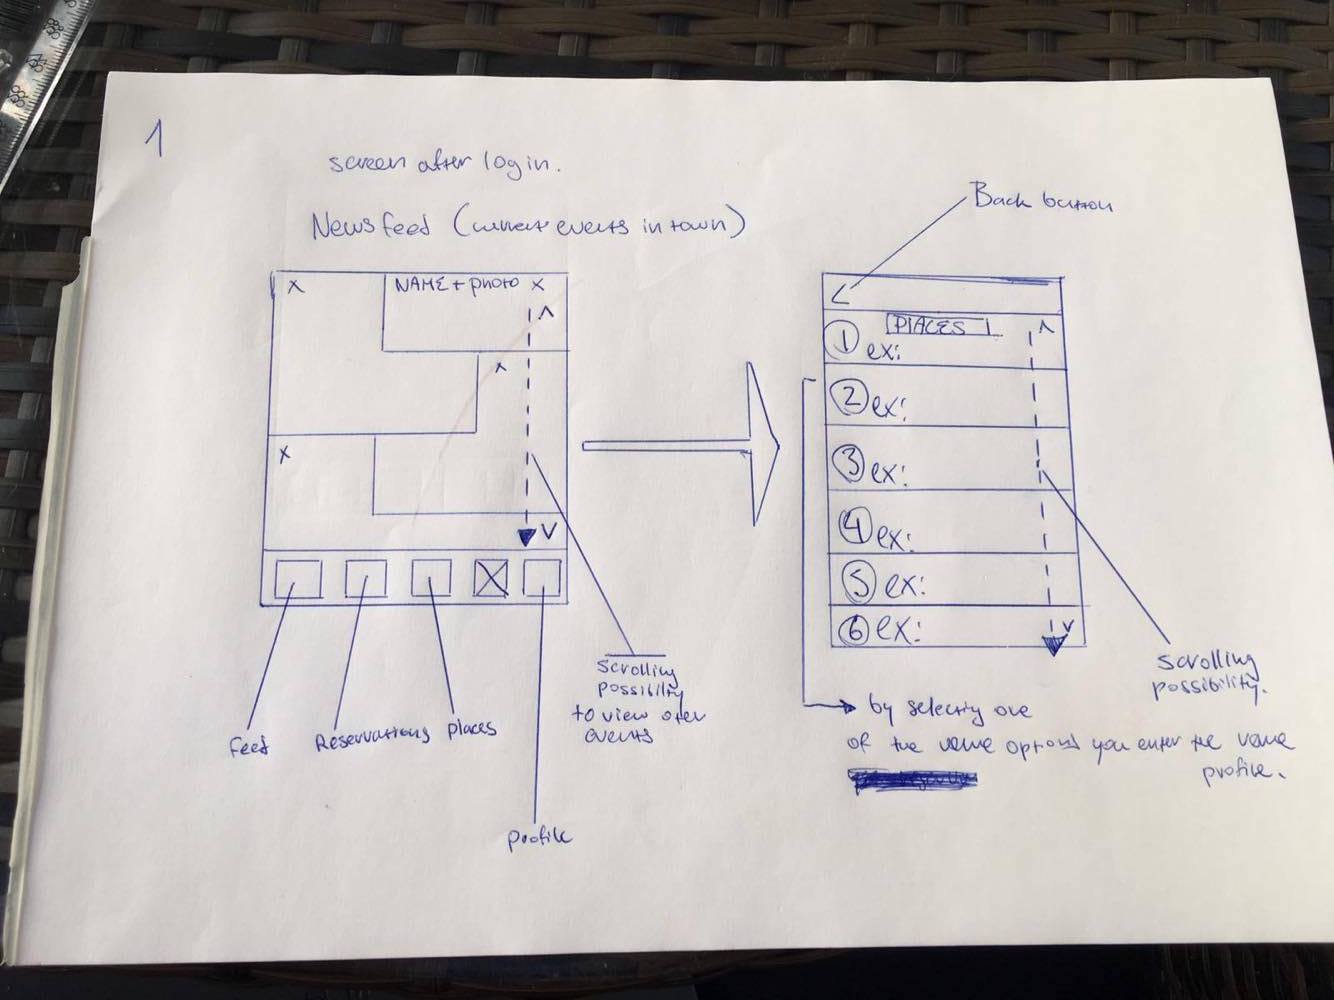 1
screen after log in.
News feed (current events in town)
x
NAME + photo x
^
x
x
v
Feed
Reservations
places
profile
scrolling
possibility
to view other
events
Back button
<
PLACES
^
1 ex:
2 ex:
3 ex:
4 ex:
5 ex:
6 ex:
v
scrolling
possibility.
by selecting one
of the venue options you enter the venue
profile.